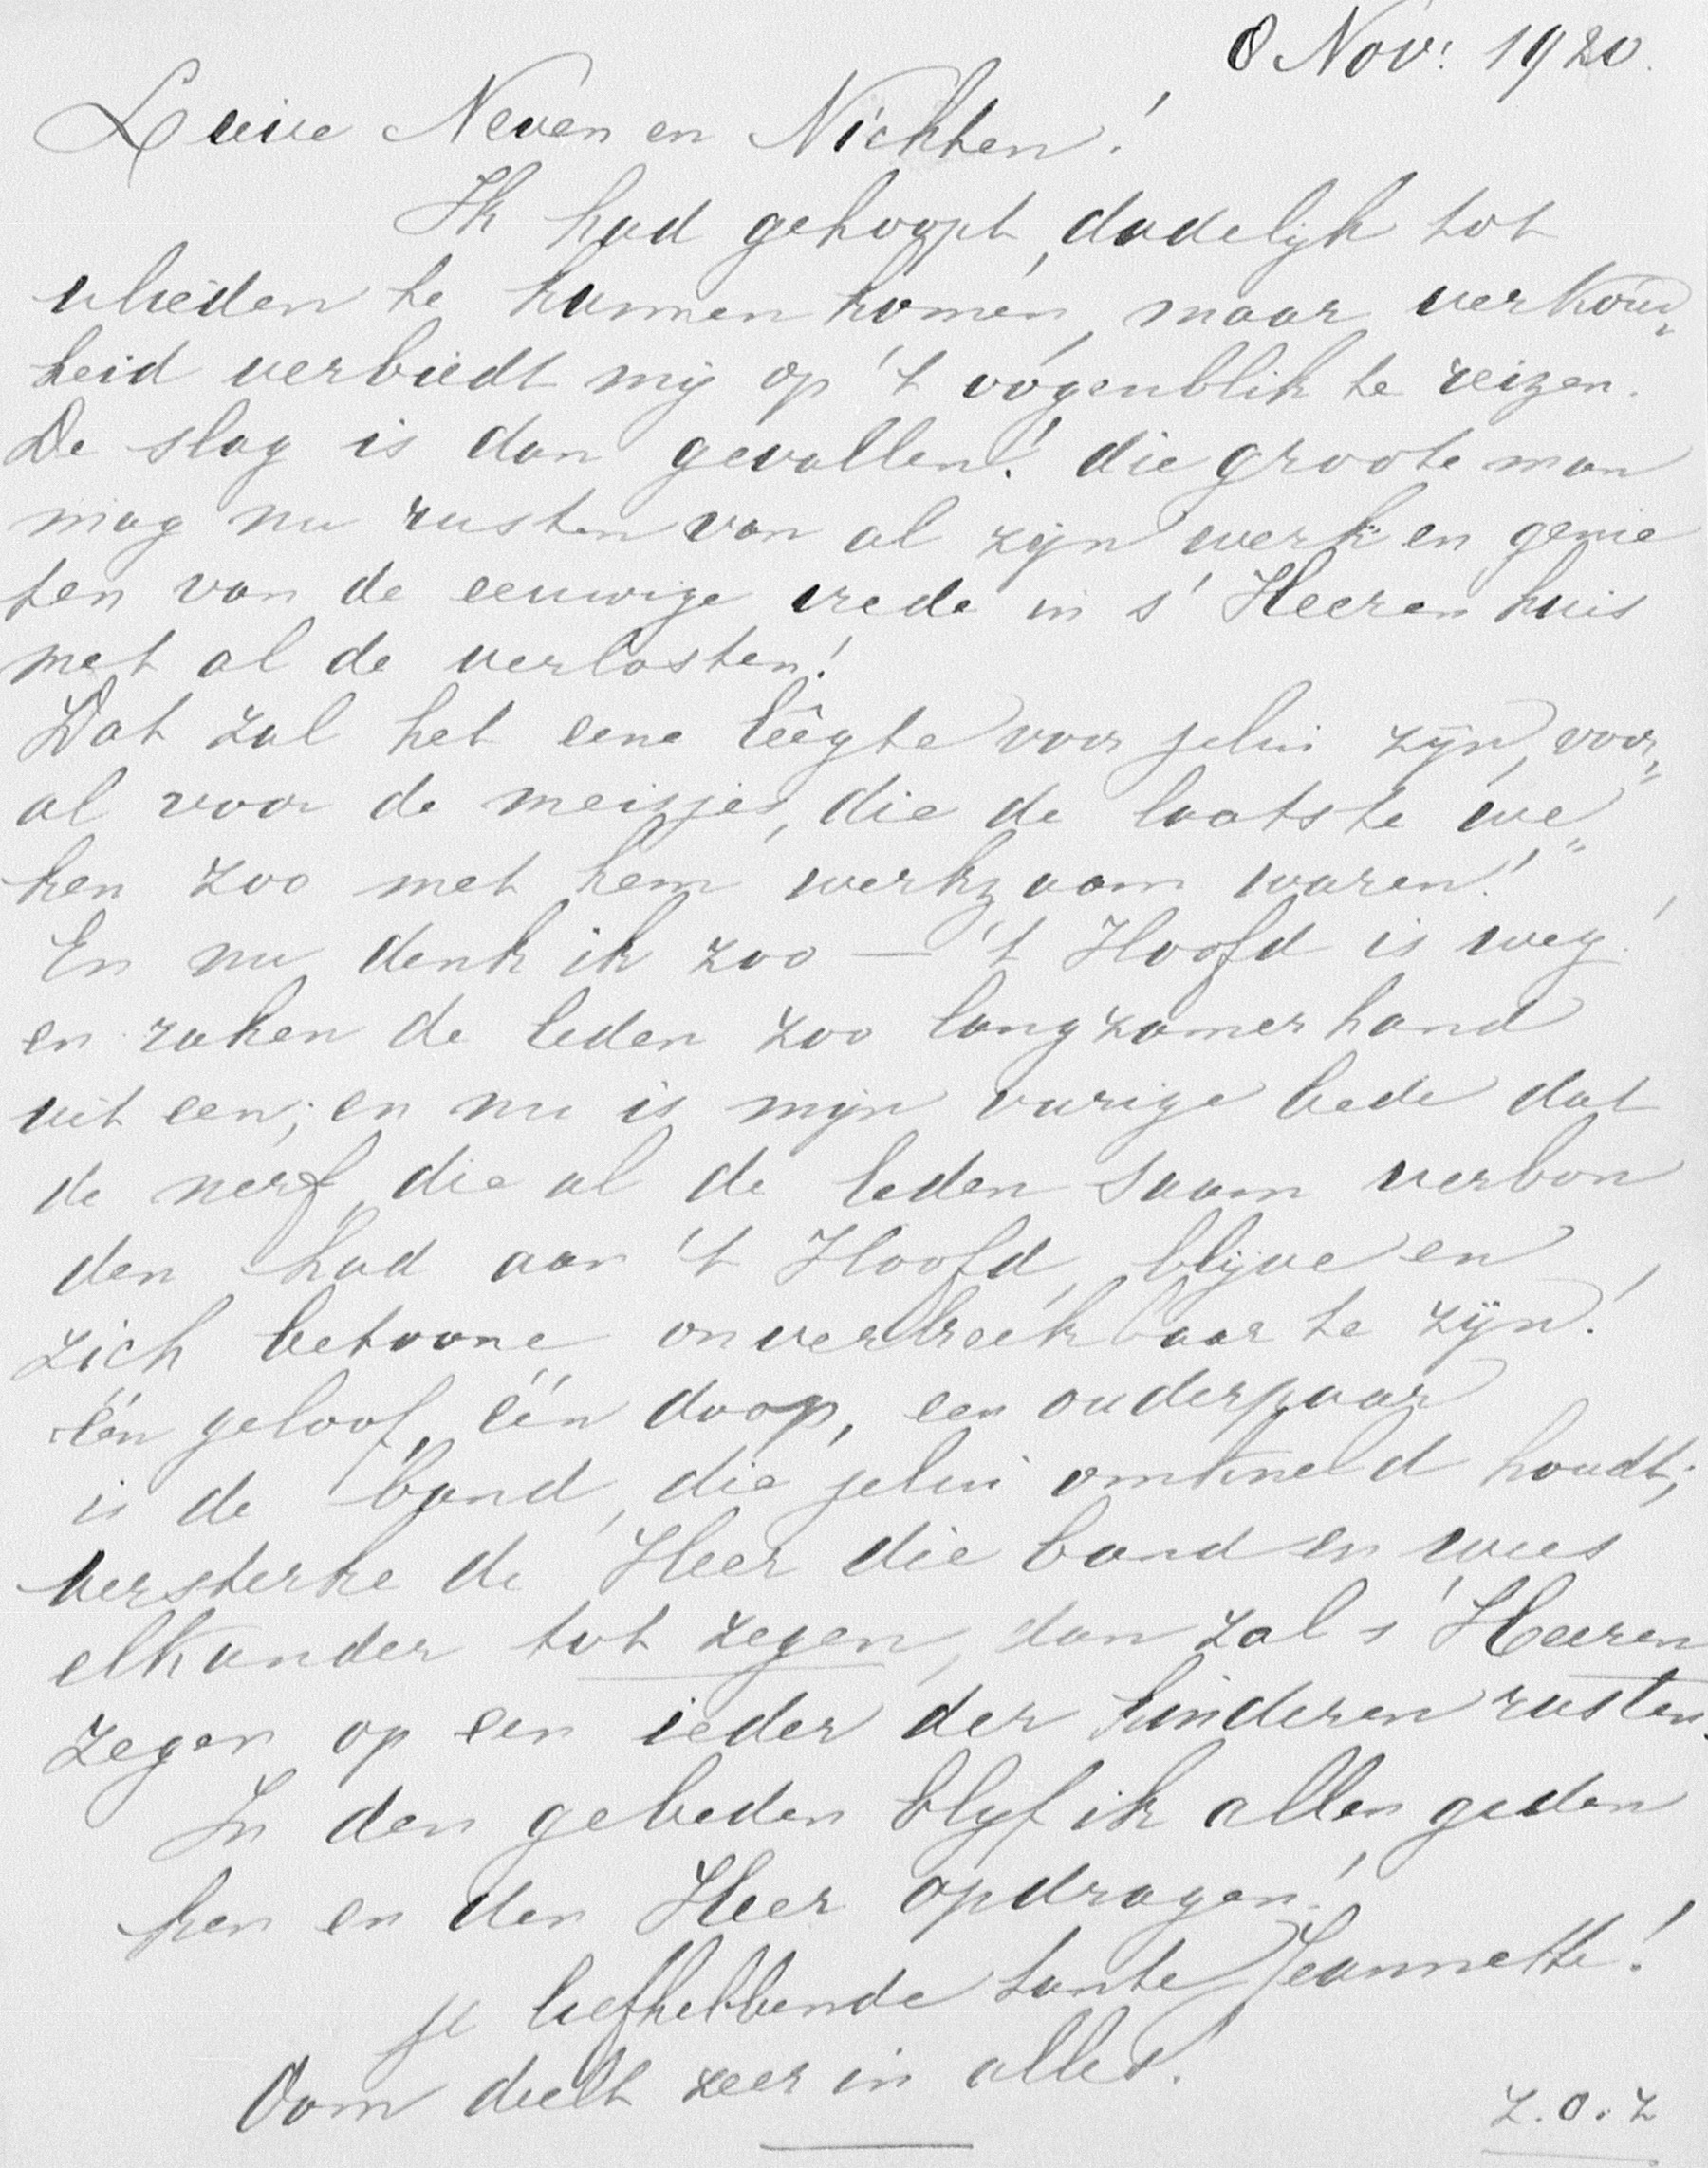 8 Nov. 1920.
Lieve Neven en Nichten!
Ik had gehoopt, dadelijk tot
ulieden te kunnen komen, maar verkoud„
heid verbiedt mij op 't oogenblik te reizen.
De slag is dan gevallen! die groote man
mag nu rusten van al zijn werk en genie
ten van de eeuwige vrede in s' Heeren huis
met al de verlosten!
Dat zal het eene leêgte voor jelui zijn, voor„
al voor de meisjes, die de laatste we„
ken zoo met hem werkzaam waren!
En nu denk ik zoo — 't Hoofd is weg!
en raken de leden zoo langzamerhand
uit een; en nu is mijn vurige bede dat
de nerf, die al de leden saam verbon
den had aan 't Hoofd, blijve en
zich betoone onverbreekbaar te zijn!
één geloof, één doop, een ouderpaar
is de band, die jelui omkneld houdt;
versterke de Heer die band en wees
elkander tot zegen, dan zal s' Heeren
zegen op een ieder der kinderen rusten.
In den gebeden blijf ik allen geden
ken en den Heer opdragen!
je liefhebbende tante Jeannette!
Oom deelt zeer in alles.
Z.O.Z